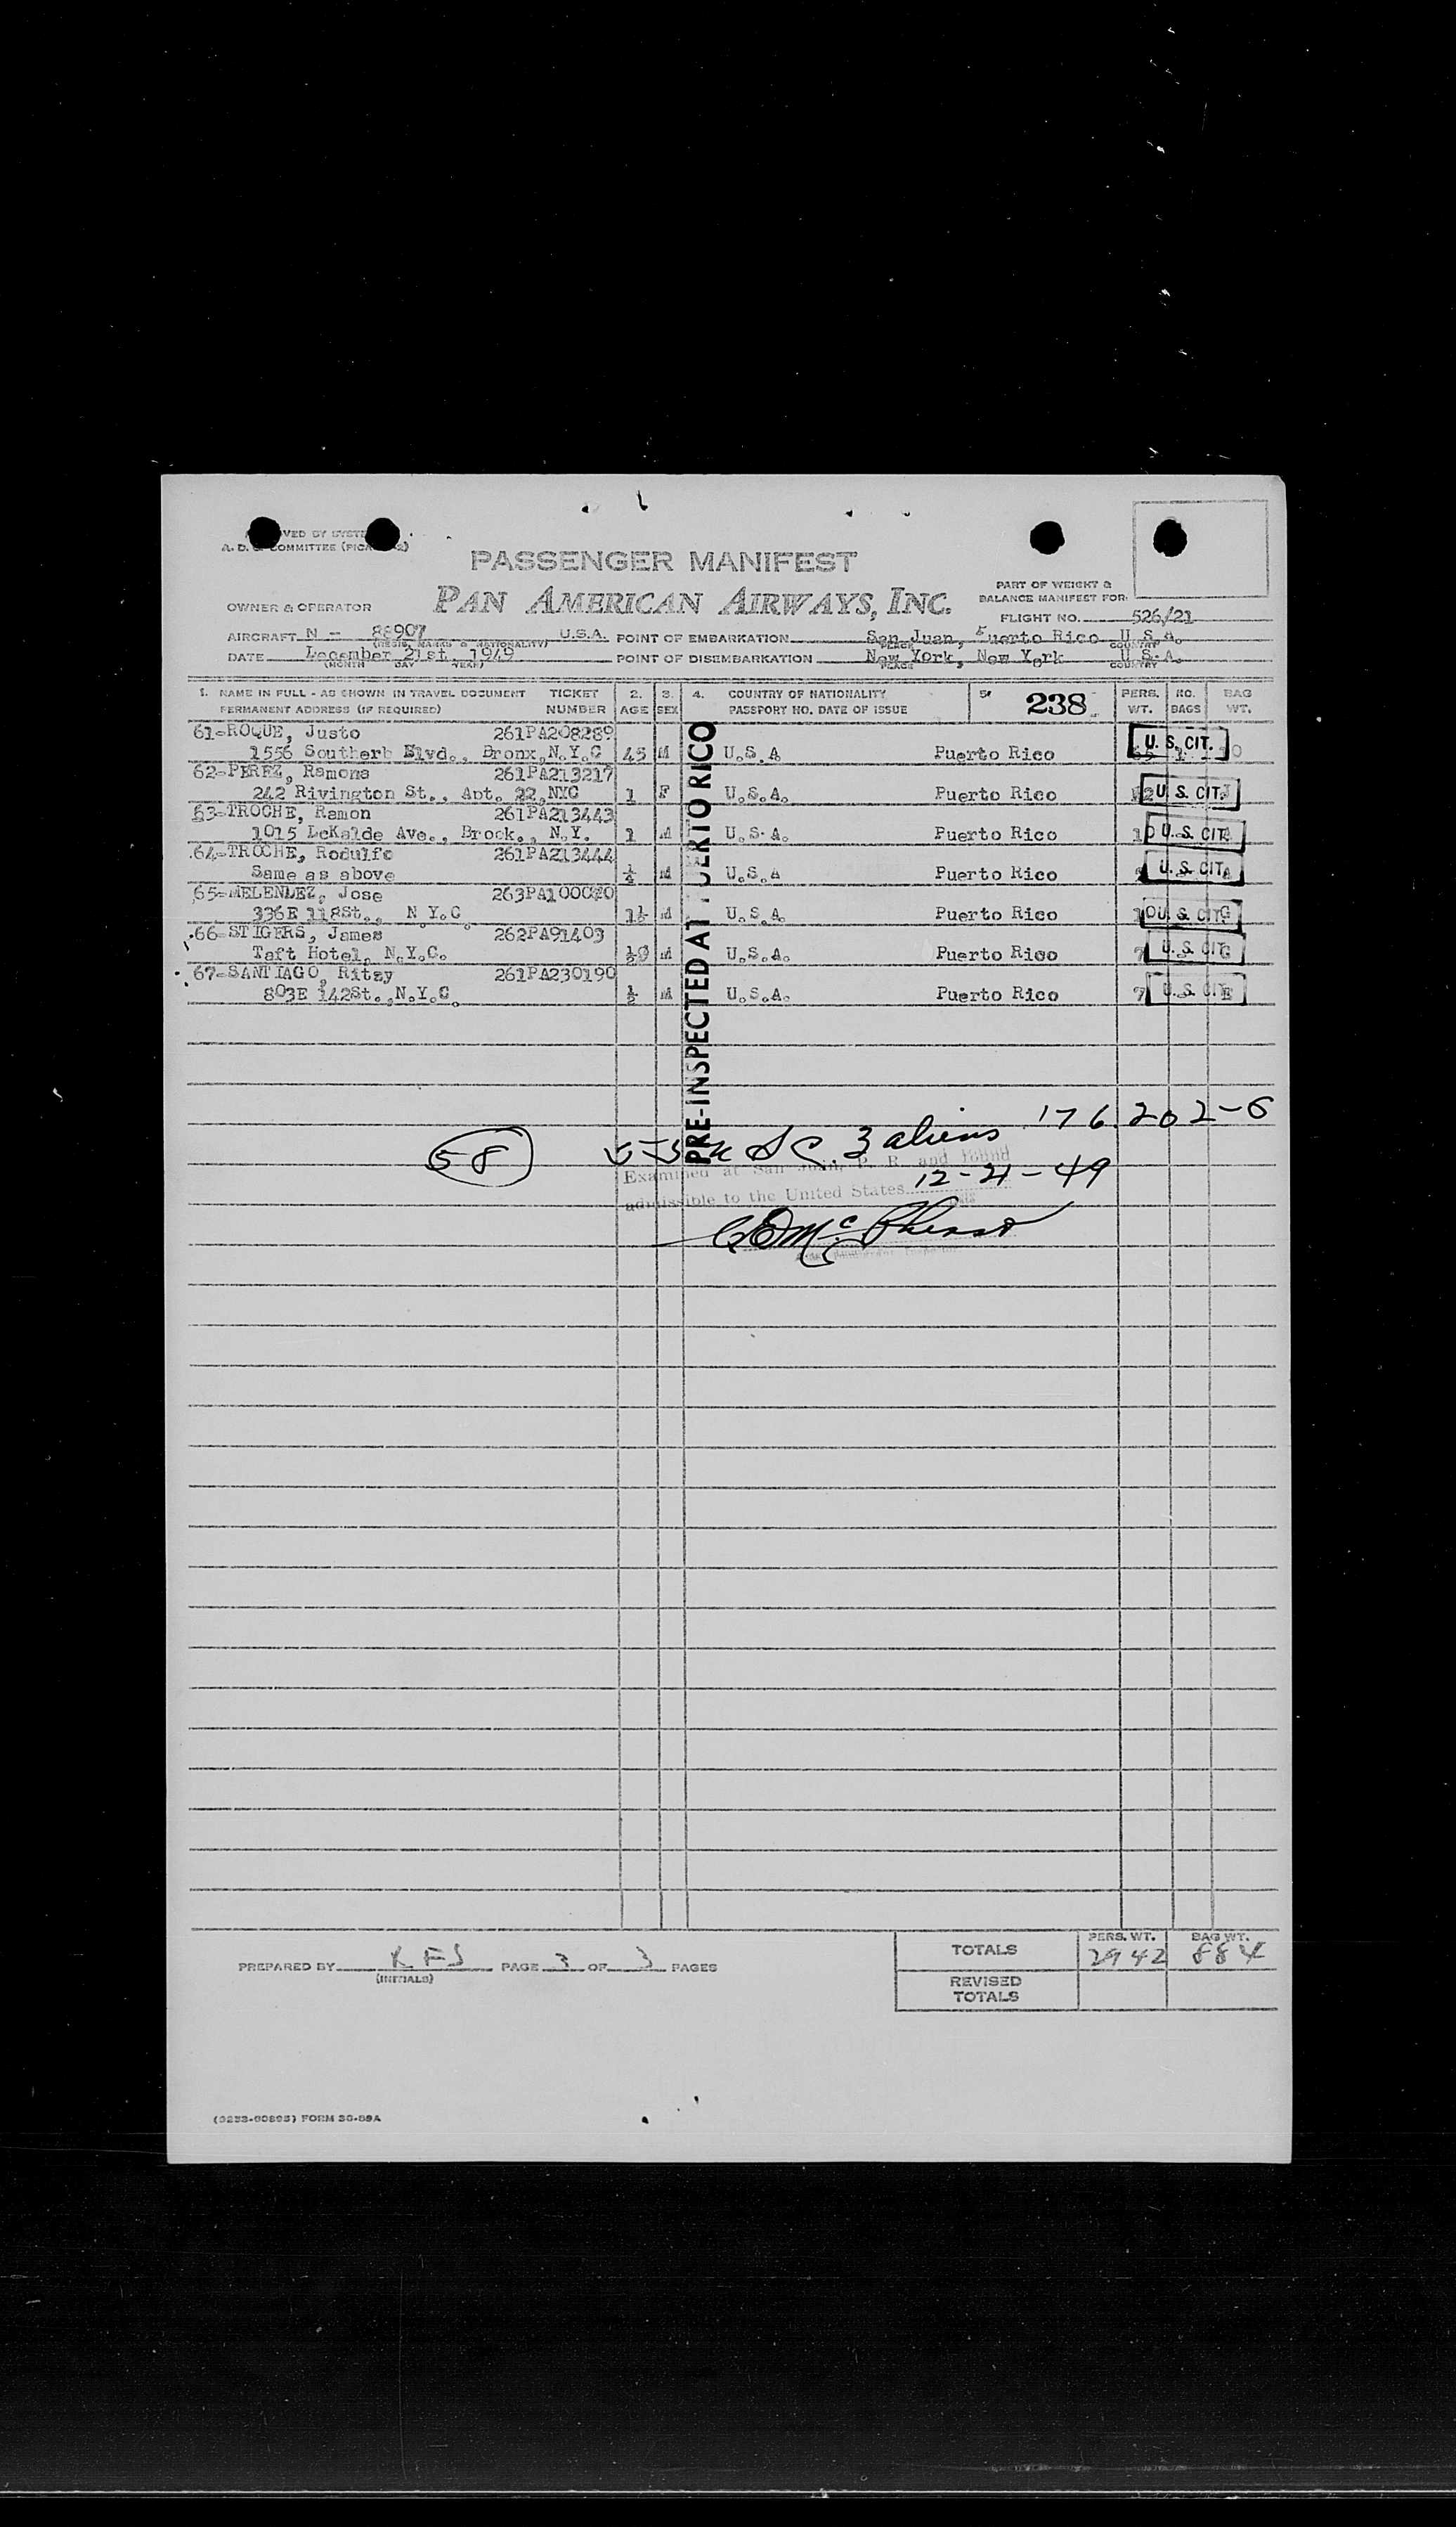 PASSENGER MANIFEST
PAN AMERICAN AIRWAYS, INC.
PART OF WEIGHT &
BALANCE MANIFEST FOR:
OWNER & OPERATOR
FLIGHT NO. 526/21
AIRCRAFT N - 88907 U.S.A. POINT OF EMBARKATION San Juan, Puerto Rico U.S.A.
(REGIS. MARKS & NATIONALITY) PLACE COUNTRY
DATE December 21st, 1949 POINT OF DISEMBARKATION New York, New York U.S.A.
(MONTH DAY YEAR) PLACE COUNTRY
1. NAME IN FULL - AS SHOWN IN TRAVEL DOCUMENT TICKET 2. 3. 4. COUNTRY OF NATIONALITY 5. 238 PERS. NO. BAG
PERMANENT ADDRESS (IF REQUIRED) NUMBER AGE SEX PASSPORT NO. DATE OF ISSUE WT. BAGS WT.
61-ROQUE, Justo 261PA208289
1556 Southerb Blvd., Bronx,N.Y.C 45 M U.S.A Puerto Rico U. S. CIT.
62-PEREZ, Ramona 261PA213217
242 Rivington St., Apt. 22,NYC 1 F U.S.A. Puerto Rico U. S. CIT.
63-TROCHE, Ramon 261PA213443
1015 DeKalde Ave., Brook., N.Y. 1 M U.S.A. Puerto Rico U. S. CIT.
64-TROCHE, Rodulfo 261PA213444
Same as above M U.S.A Puerto Rico U. S. CIT.
65-MELENDEZ, Jose 263PA100020
336E 118St., N.Y.C. 1½ M U.S.A. Puerto Rico U. S. CIT.
66-STIGERS, James 262PA91403
Taft Hotel, N.Y.C. M U.S.A. Puerto Rico U. S. CIT.
67-SANTIAGO, Ritzy 261PA230190
803E 142St.,N.Y.C. ½ M U.S.A. Puerto Rico U. S. CIT.
PRE-INSPECTED AT PUERTO RICO
176.202-6
58 3 aliens
Examined at San Juan, P. R. and found
12-21-49
admissible to the United States
TOTALS PERS. WT. 2942 BAG WT. 884
PREPARED BY RFS PAGE 3 OF 3 PAGES
(INITIALS)
REVISED
TOTALS
FORM 36-89A